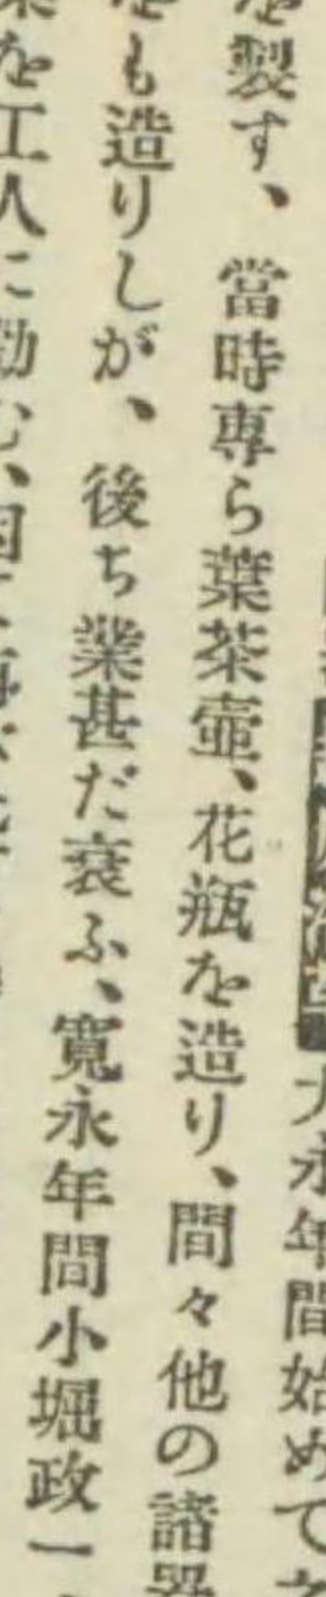 大永年間始めて
を製す、當時專ら葉茶壺、花瓶を造り、間々他の諸器
をも造りしが、後ち業甚だ衰ふ、寬永年間小堀政一
を工人に勸む、